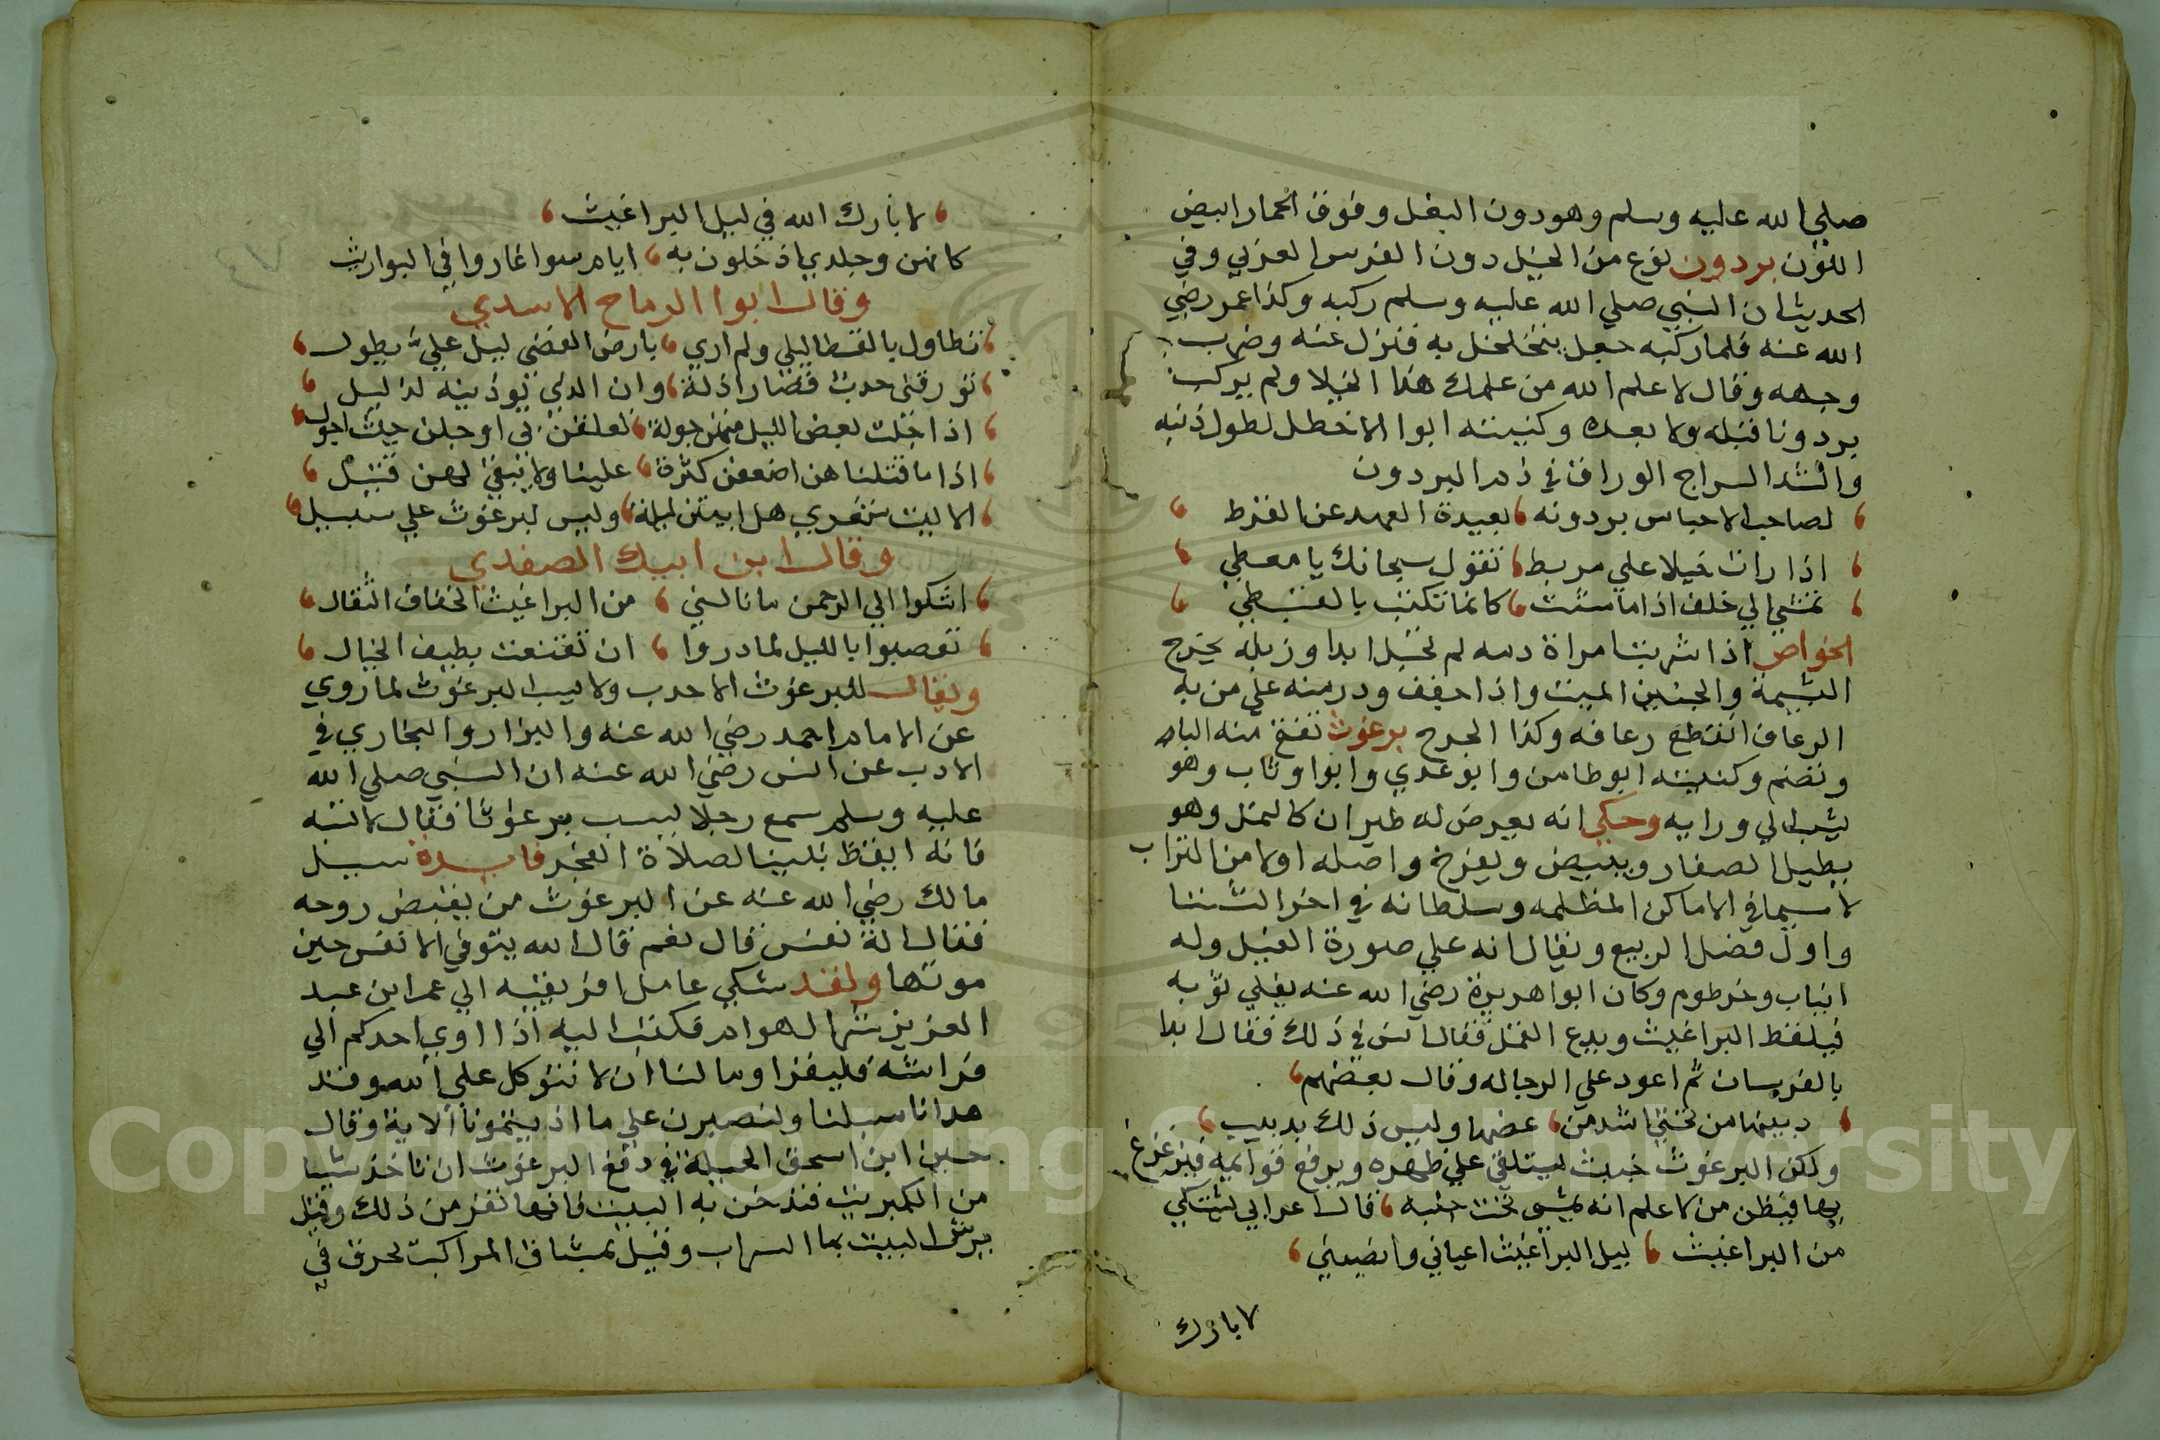 صلي الله عليه وسلم وهو دون البغل وفوق الحمار ابيض
اللون بردون نوع من الخيل دون الفرس العربي وفي
الحديث ان النبي صلي الله عليه وسلم ركبه وكذا عمر رضي
الله عنه فلما ركبه جعل يتخلخل به فنزل عنه وضرب
وجهه وقال لا علم الله من علمك هذا الخيلا ولم يركب
بردونا قبله ولا بعده وكنيته ابوا الاخطل لطول ذنبه
وانشد السراج الوراق في ذم البردون
لصاحب الاحباس بردونه بعيدة العهد عن القرط
اذا رات خيلا علي مربط تقول سبحانك يا معطي
تمشي الي خلف اذا ما مشت كانما تكتب بالقبطي
الخواص اذا شربت امراة دمه لم تحبل ابدا وزبله يخرج
المشيمة والجنين الميت واذا جفف ودر منه علي من به
الرعاف انقطع رعافه وكذا الجرح برغوث تفتح منه الباء
وتضم وكنيته ابو طامر وابو عدي وابوا وثاب وهو
يثب الي ورايه وحكي انه يعرض له طيران كالنمل وهو
يطيل السفاد ويبيض ويفرخ واصله اولا من التراب
لا سيما في الاماكن المظلمه وسلطانه في اخر الشتا
واول فصل الربيع ويقال انه علي صورة الفيل وله
انياب وخرطوم وكان ابوا هريرة رضي الله عنه يفلي ثوبه
فيلقط البراغيث ويدع القمل فقال انس في ذلك فقال ابدا
بالفرسان ثم اعود علي الرجاله وقال بعضهم
دبيبها من تحتي اشد من عضها وليس ذلك بدبيب
ولكن البرغوث خبيث يستلقي علي ظهره ويرفع قوايمه فيزغزغ
بها فيظن من لا علم انه يمشي تحت جنبه قال اعرابي يشتكي
من البراغيث ليل البراغيث اعياني وانصبني
لا بارك
لا بارك الله في ليل البراغيث
كانهن وجلدي اذ خلون به ايام سوا غاروا في المواريث
وقال ابوا الرماح الاسدي
تطاول بالفسطاط ليلي ولم اري بارض الفضي ليل علي يطول
تورقني حدب قصار اذلة وان الذي يوذينه لذليل
اذا جلت بعض الليل منهن جولة تعلقن بي او جلن حيث اجول
اذا ما قتلنا هن اضعفن كثرة علينا ولا ينبغي لهن قتيل
الا ليت شعري هل ابيتن ليلة وليس لبرغوث علي سبيل
وقال ابن ايبك الصفدي
اشكوا الي الرحمن ما نالني من البراغيث الخفاف الثقال
تعصبوا بالليل لما دروا ان تقنعت بطيف الخيال
ويقال للبرغوث الاحدب ولا يسب البرغوث لما روي
عن الامام احمد رضي الله عنه والبزار والبخاري في
الادب عن انس رضي الله عنه ان النبي صلي الله
عليه وسلم سمع رجلا يسب برغوثا فقال لا تسبه
فانه ايقظ نبيا لصلاة الفجر فايدة سيل
مالك رضي الله عنه عن البرغوث من يقبض روحه
فقال اله نفس قال نعم قال الله يتوفي الانفس حين
موتها ولقد شكي عامل افريقيه الي عمر ابن عبد
العزيز شرها لهوام فكتب اليه اذا اوي احدكم الي
فراشه فليقرا وما لنا ان لا نتوكل علي الله وقد
هدانا سبلنا ولنصبرن علي ما اذيتمونا الاية وقال
حسين ابن اسحق الحيلة في دفع البرغوث ان تاخذ شيا
من الكبريت فتدخن به البيت فانها تفر من ذلك وقيل
يرش البيت بما السداب وقيل بمشاق المراكب تحرق في